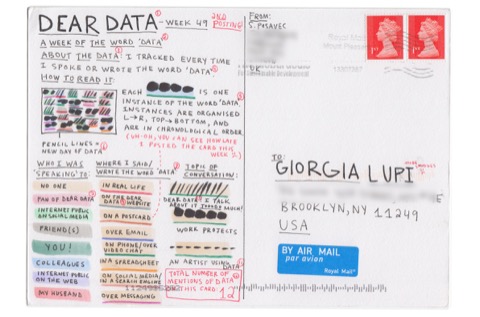 DEAR DATA - WEEK 49
2ND POSTING
A WEEK OF THE WORD 'DATA'
ABOUT THE DATA: I TRACKED EVERY TIME
I SPOKE OR WROTE THE WORD 'DATA'
HOW TO READ IT:
EACH IS ONE
INSTANCE OF THE WORD 'DATA'
INSTANCES ARE ORGANISED
L→R, TOP→BOTTOM, AND
ARE IN CHRONOLOGICAL ORDER
(UH-OH, YOU CAN SEE HOW LATE
I POSTED THE CARD THIS
WEEK!)
PENCIL LINES =
NEW DAY OF DATA
WHO I WAS
'SPEAKING' TO:
NO ONE
FAN OF DEAR DATA
INTERNET PUBLIC
ON SOCIAL MEDIA
FRIEND(S)
YOU!
COLLEAGUES
INTERNET PUBLIC
ON THE WEB
MY HUSBAND
WHERE I SAID/
WROTE THE WORD 'DATA'
IN REAL LIFE
ON THE DEAR
DATA WEBSITE
ON A POSTCARD
OVER EMAIL
ON PHONE/OVER
VIDEO CHAT
IN A SPREADSHEET
ON SOCIAL MEDIA/
IN A SEARCH ENGINE
OVER MESSAGING
TOPIC OF
CONVERSATION:
DEAR DATA (I TALK
ABOUT IT TOOOO MUCH!)
WORK PROJECTS
AN ARTIST USING
DATA
TOTAL NUMBER OF
MENTIONS OF DATA
ON THIS CARD: 12
FROM:
S. POSAVEC
UK
Royal Mail
1st
1st
TO:
GIORGIA LUPI
BROOKLYN, NY 11249
USA
BY AIR MAIL
par avion
Royal Mail